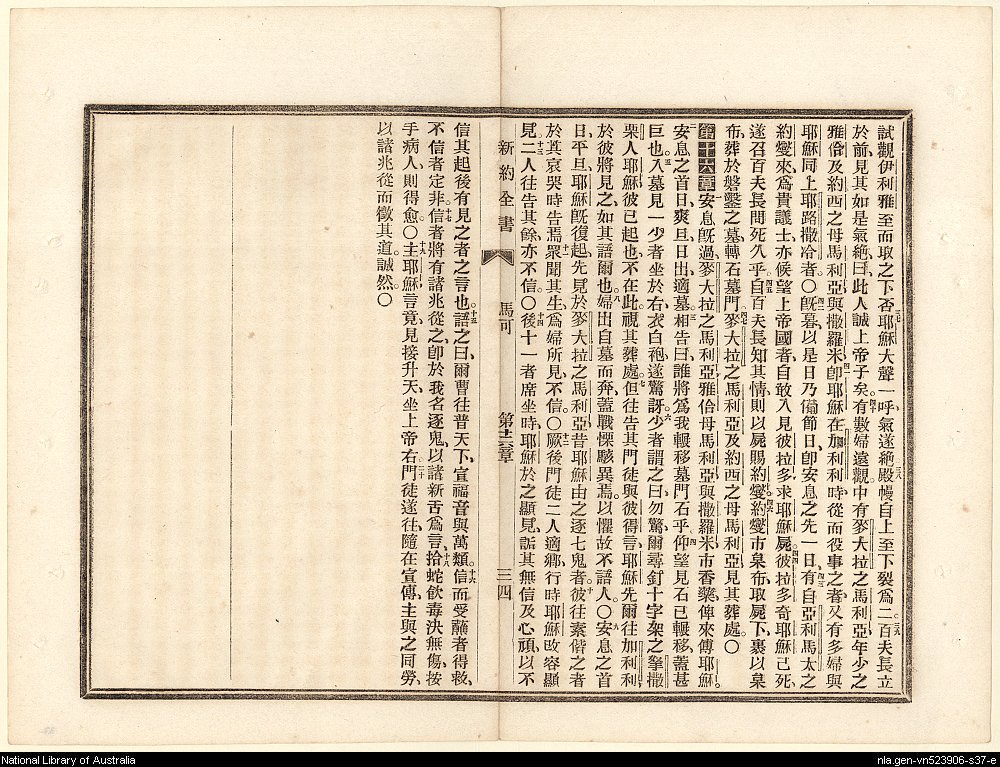 試觀伊利雅至而取之下否耶穌大聲一呼氣遂絕殿幔自上至下裂爲二百夫長立
於前見其如是氣絕曰此人誠上帝子矣有數婦遠觀中有麥大拉之馬利亞年少之
雅各及約西之母馬利亞與撒羅米卽耶穌在加利利時從而役事之者又有多婦與
耶穌同上耶路撒冷者〇旣暮以是日乃備節日卽安息之先一日有自亞利馬太之
約爕來爲貴議士亦候望上帝國者自敢入見彼拉多求耶穌屍彼拉多奇耶穌已死
遂召百夫長問死久乎自百夫長知其情則以屍賜約爕約爕市枲布取屍下裹以枲
布葬於磐鑿之墓轉石墓門麥大拉之馬利亞及約西之母馬利亞見其葬處〇
第十六章安息旣過麥大拉之馬利亞雅各母馬利亞與撒羅米市香藥俾來傅耶穌
安息之首日爽旦日出適墓相告曰誰將爲我輾移墓門石乎仰望見石已輾移蓋甚
巨也入墓見一少者坐於右衣白袍遂驚訝少者謂之曰勿驚爾尋釘十字架之拏撒
勒人耶穌彼已起也不在此視其葬處但往告其門徒與彼得言耶穌先爾往加利利
於彼將見之如其語爾也婦出自墓而奔蓋戰慄駭異焉以懼故不語人〇安息之首
日平旦耶穌旣復起先見於麥大拉之馬利亞昔耶穌由之逐七鬼者彼往素偕之者
於其哀哭時告焉眾聞其生爲婦所見不信〇厥後門徒二人適鄉行時耶穌改容顯
見二人往告其餘亦不信〇後十一者席坐時耶穌於之顯見詬其無信及心頑以不
新約全書 馬可 第十六章 三四
信其起後有見之者之言也語之曰爾曹往普天下宣福音與萬類信而受蘸者得救
不信者定非信者將有諸兆從之卽於我名逐鬼以諸新舌爲言拾蛇飮毒決無傷按
手病人則得愈〇主耶穌言竟見接升天坐上帝右門徒遂往隨在宣傳主與之同勞
以諸兆從而徵其道誠然〇
National Library of Australia
nla.gen-vn523906-s37-e